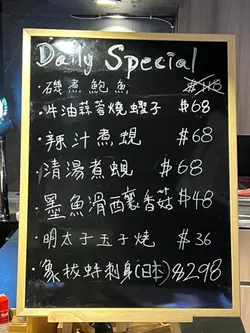 Daily Special
·磯煮鮑魚 $148
·牛油蒜蓉燒蟶子 $68
·辣汁煮蜆 $68
·清湯煮蜆 $68
·墨魚滑釀香菇 $48
·明太子玉子燒 $36
·象拔蚌刺身(日本) $298